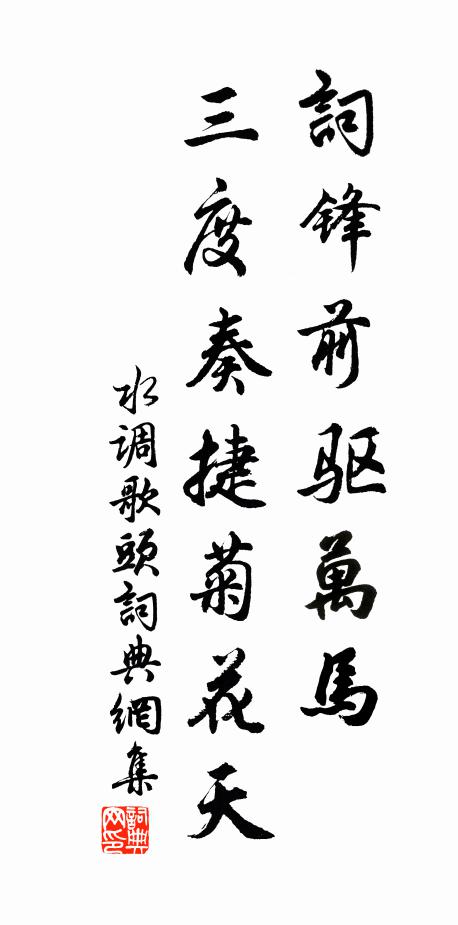 詞鋒前驱萬馬
三度奏捷菊花天
水调歌頭詞典網集
詞典
网印